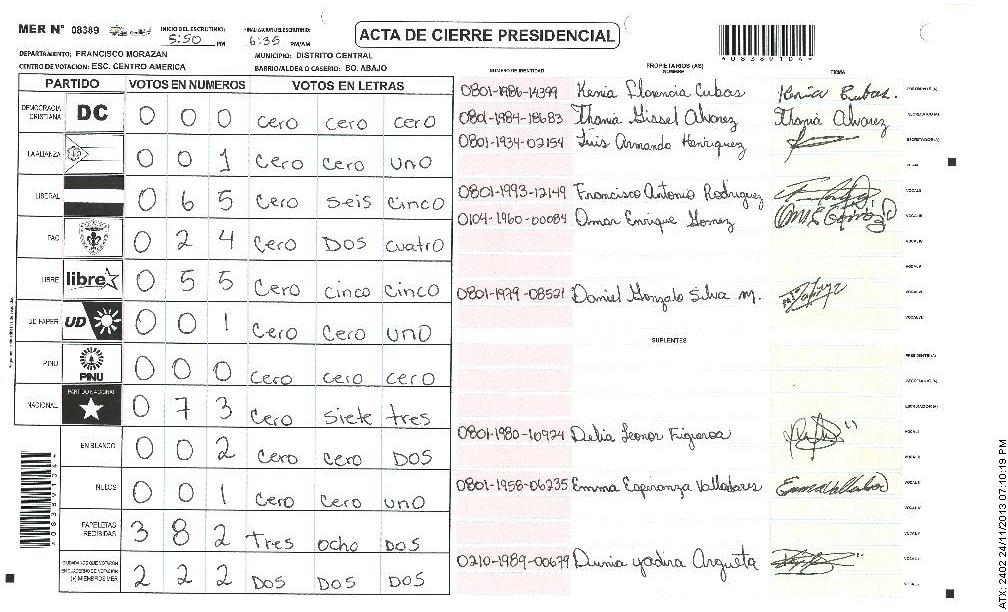 MER N° 08389
INICIO DEL ESCRUTINIO: 5:50 PM
FINALIZACION ESCRUTINIO: 6:35 PM/AM
ACTA DE CIERRE PRESIDENCIAL
*08389104*
DEPARTAMENTO: FRANCISCO MORAZAN
MUNICIPIO: DISTRITO CENTRAL
CENTRO DE VOTACION: ESC. CENTRO AMERICA
BARRIO/ALDEA O CASERIO: BO. ABAJO
PARTIDO VOTOS EN NUMEROS VOTOS EN LETRAS
DEMOCRACIA CRISTIANA DC 0 0 0 cero cero cero
LA ALIANZA 0 0 1 cero cero uno
LIBERAL 0 6 5 cero seis cinco
PAC 0 2 4 cero DOS cuatro
LIBRE libre 0 5 5 cero cinco cinco
UD FAPER UD 0 0 1 cero cero uno
PINU PINU 0 0 0 cero cero cero
NACIONAL PARTIDO NACIONAL 0 7 3 cero siete tres
EN BLANCO 0 0 2 cero cero DOS
NULOS 0 0 1 cero cero uno
PAPELETAS RECIBIDAS 3 8 2 tres ocho DOS
CIUDADANOS QUE VOTARON EN CUADERNO DE VOTACION (+) MIEMBROS MER 2 2 2 DOS DOS DOS
*08389104*
NUMERO DE IDENTIDAD
PROPIETARIOS (AS)
NOMBRE
FIRMA
0801-1986-14399 Kenia Florencia Cubas Kenia Cubas. PRESIDENTE (A)
0801-1984-18683 Thania Gissel Alvarez Thania Alvarez SECRETARIO (A)
0801-1934-02154 Luis Armando Henriquez ESCRUTADOR (A)
VOCAL I
0801-1993-12149 Francisco Antonio Rodriguez VOCAL II
0104-1960-00084 Omar Enrique Gomez VOCAL III
VOCAL IV
VOCAL V
0801-1979-08521 Daniel Gonzalo Silva M. VOCAL VI
VOCAL VII
SUPLENTES
PRESIDENTE (A)
SECRETARIO (A)
ESCRUTADOR (A)
0801-1980-10924 Delia Leonor Figueroa VOCAL I
VOCAL II
0801-1958-06235 Emma Esperanza Valladares Emma Valladares VOCAL III
VOCAL IV
0210-1989-00679 Dunia yadira Argueta VOCAL V
ATX: 2402 24/11/2013 07:10:19 PM